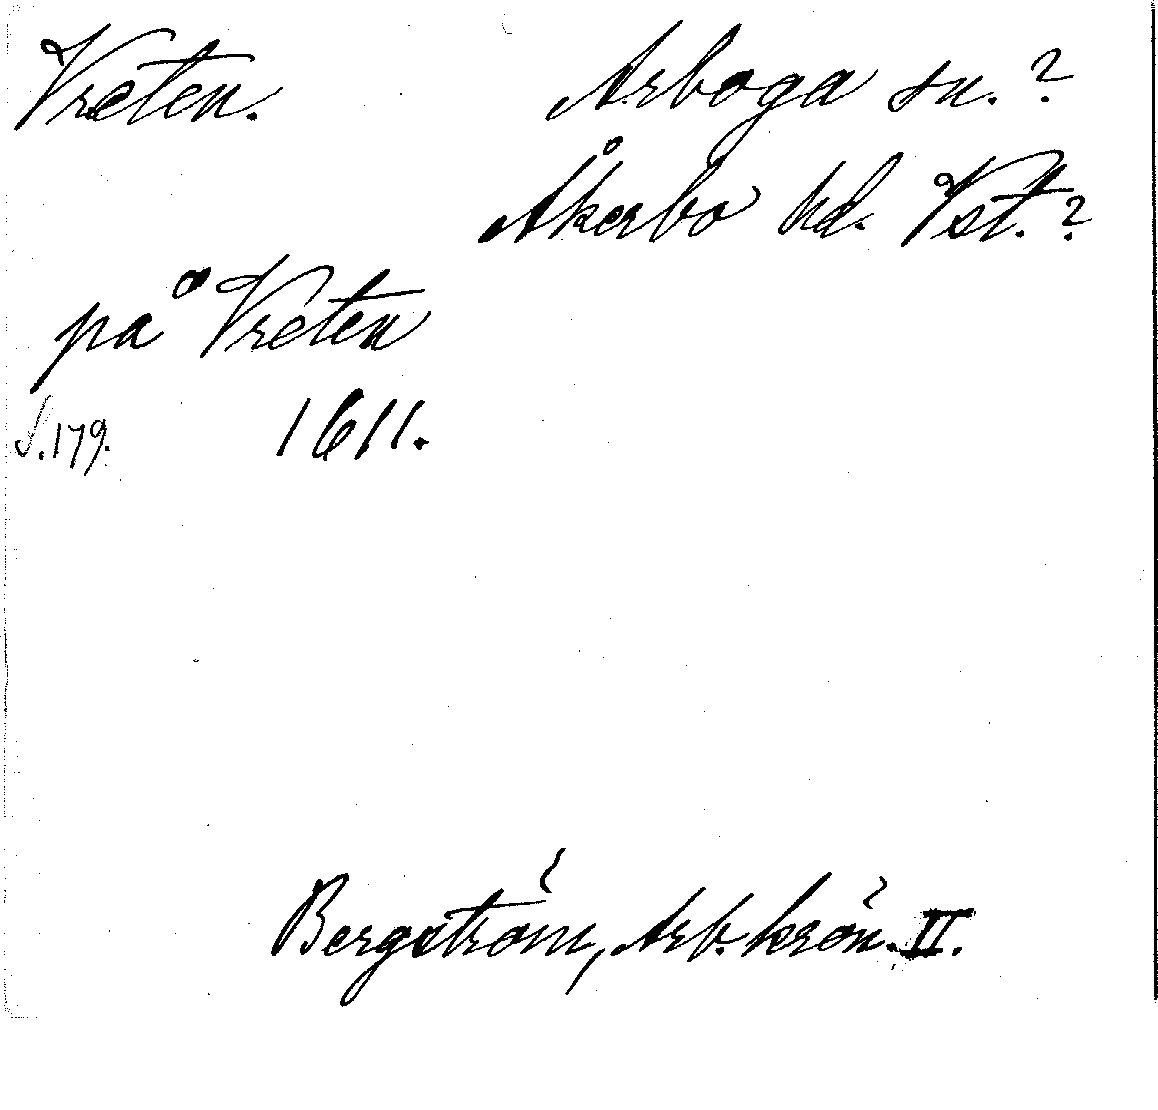 Vreten. Arboga sn.?
Åkerbo hd. Vst.?
på Vreten
S.179. 1611.
Bergström, Arb. krön. II.